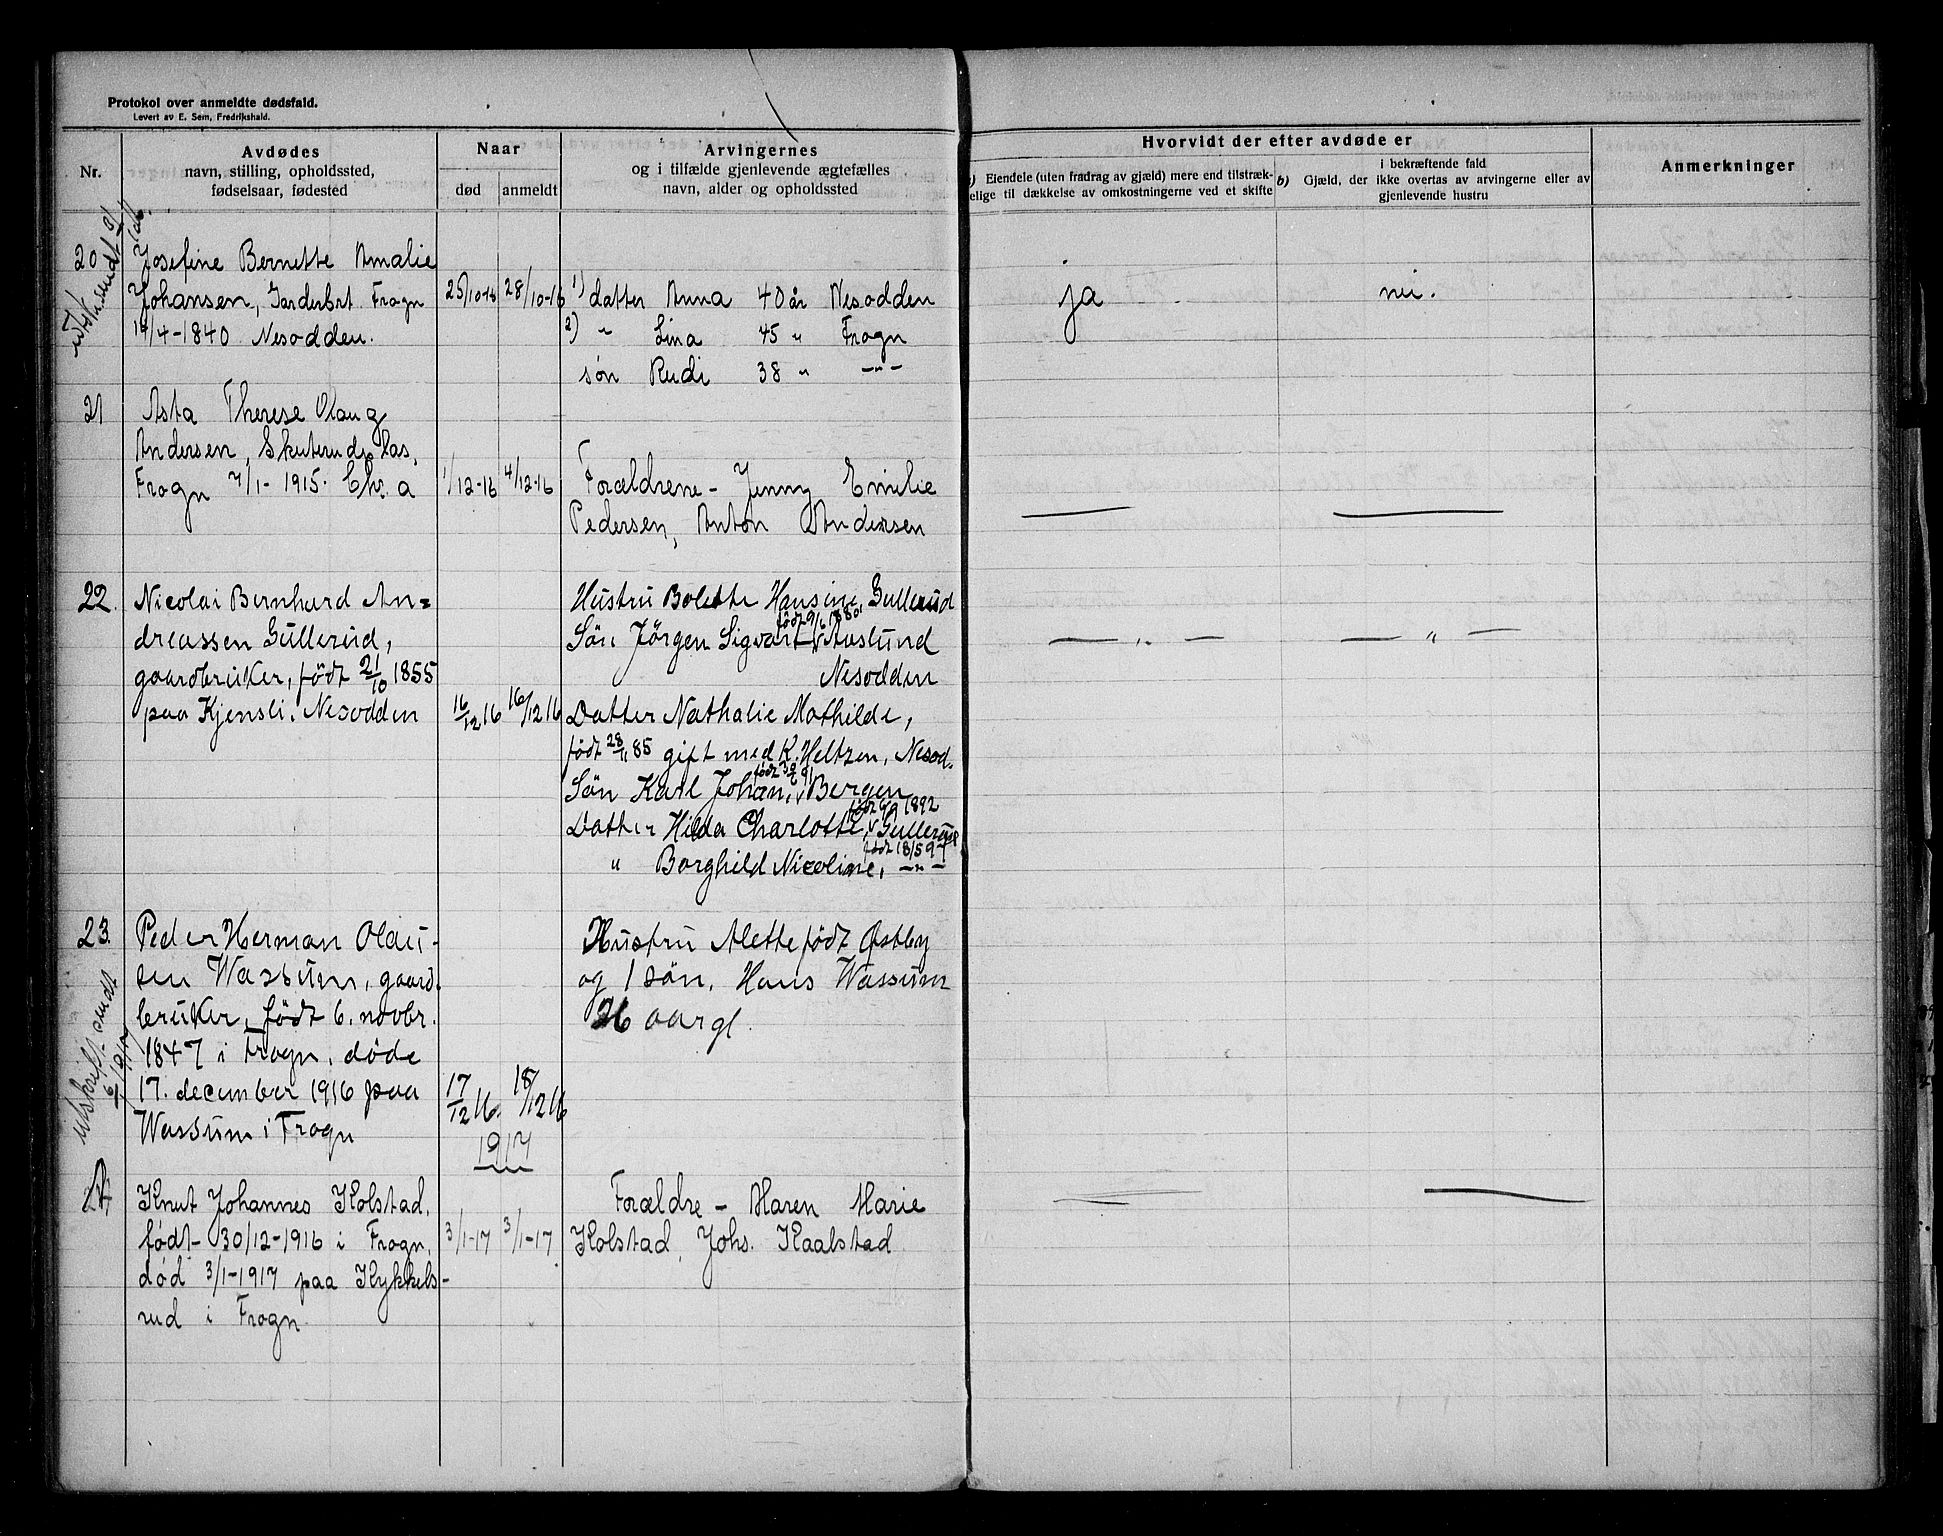 Protokol over anmeldte dødsfald.
Levert av E. Sem, Fredrikshald.
Nr.
Avdødes
navn, stilling, opholdssted,
fødselsaar, fødested
Naar
død
anmeldt
Arvingernes
og i tilfælde gjenlevende ægtefælles
navn, alder og opholdssted
Hvorvidt der efter avdøde er
Eiendele (uten fradrag av gjæld) mere end tilstræk-
elige til dækkelse av omkostningerne ved et skifte
b)
i bekræftende fald
Gjæld, der ikke overtas av arvingerne eller av
gjenlevende hustru
Anmerkninger
20
Josefine Bernette Amalie
Johansen, Frogn
14/4-1840 Nesodden.
25/10-16
28/10-16
1) datter Anna 40 år Nesodden
2) " Lina 45 " Frogn
søn Rudi 38 " -"-
ja
nei.
21
Asta Therese Olaug
Andersen, Skuterudplas,
Frogn 7/1-1915. Chr.a
1/12-16
4/12-16
Forældrene - Jenny Emilie
Pedersen, Anton Andersen
22.
Nicolai Bernhard An=
dreassen Gullerud,
gaardbruker, født 21/10 1855
paa Kjensli, Nesodden
16/12 16
16/12 16
Hustru Bolette Hansine, Gullerud
født 9/6 1880
Søn Jørgen Sigvart, Auslund
Nesodden
Datter Nathalie Mathilde,
født 28/11 85 gift med K. Heltzen, Nesod-
født 30/6 91
Søn Karl Johan, Bergen
født 6/9 1892
Datter Hilda Charlotte, Gullerud
født 18/5 97
" Borghild Nicoline, -"-
- " -
- " -
23.
utskrift sendt
6/1 1917
Peder Herman Olau-
sen Wassum, gaard-
bruker, født 6. novbr.
1847 i Frogn, døde
17. december 1916 paa
Wassum i Frogn
17/12 16.
18/12 16
Hustru Alette født Østby
og 1 søn, Hans Wassum
26 aar gl.
1917
1.
Knut Johannes Kolstad,
født 30/12-1916 i Frogn,
død 3/1-1917 paa Kykkels-
rud i Frogn
3/1-17
3/1-17
Forældre - Maren Marie
Kolstad, Johs. Kaalstad